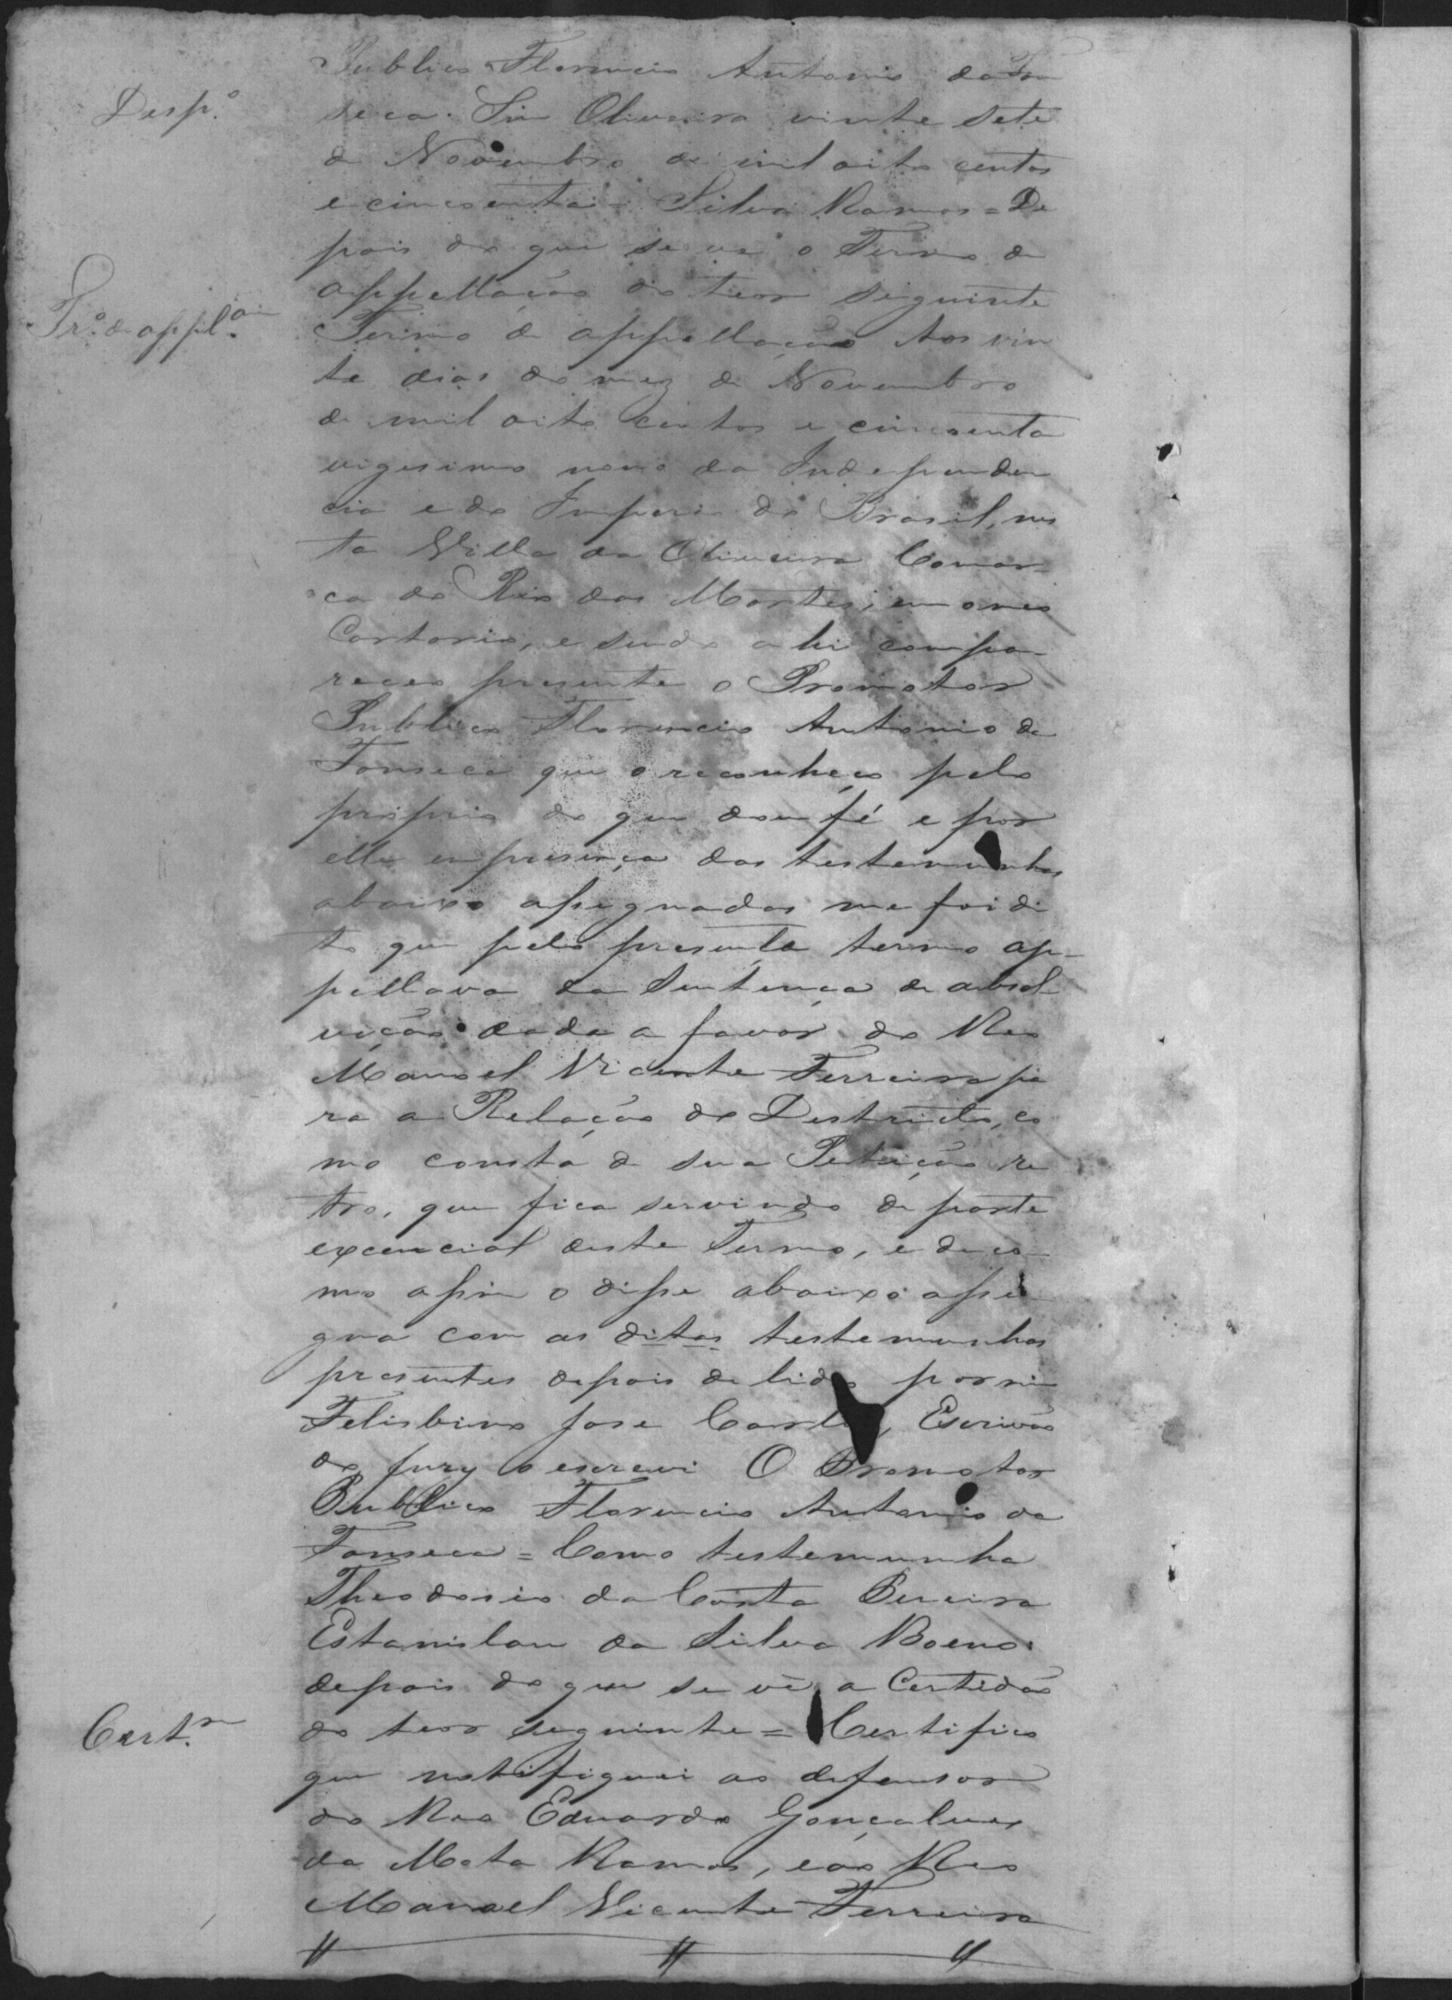 Publico Florencio Antonio da Fon
Desp.º
seca. Sim Oliveira vinte sete
de Novembro de mil oito centos
e cincoenta = Silva Ramos = De
pois do que se ve o Termo de
appellação do teor seguinte
Tr.º de appel.ão
Termo de appellação Aos vin
te dias do mez de Novembro
de mil oito centos e cincoenta
vigesimo nono da Independen
cia e do Imperio do Brasil, nes
ta Villa da Oliveira Comar-
ca do Rio das Mortes, em o meo
Cartorio, e sendo ahi compa-
receo presente o Promotor
Publico Florencio Antonio da
Fonseca que o reconheço pelo
proprio do que dou fé e por
elle em presença das testemunhas
abaixo assignadas me foi di
to que pelo presente termo ap-
pellava da Sentença de absol-
vição dada a favor do Reo
Manoel Vicente Ferreira pa
ra a Relação do Destricto, co
mo consta de sua Petição re
tro, que fica servindo de parte
excencial deste Termo, e de co-
mo assim o disse abaixo assi
gna com as ditas testemunhas
presentes depois de lido por mim
Felisbino Jose Carlos, Escrivão
do Jury o escrevi O Promotor
Publico Florencio Antonio da
Fonseca = Como testemunha
Theodosio da Costa Pereira
Estanislau da Silva Boeno.
depois do que se vê a Certidão
Cert.m
do teor seguinte = Certifico
que notifiquei ao defensor
do Reo Eduardo Gonçalves
da Mata Ramos, e ao Reo
Manoel Vicente Ferreira